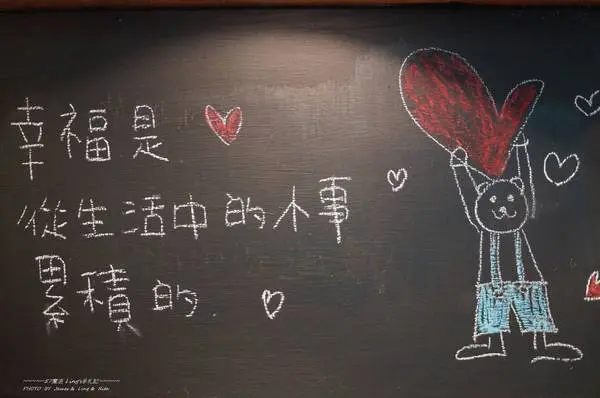 幸福是
從生活中的小事
累積的
PHOTO BY James & Ling & Nano